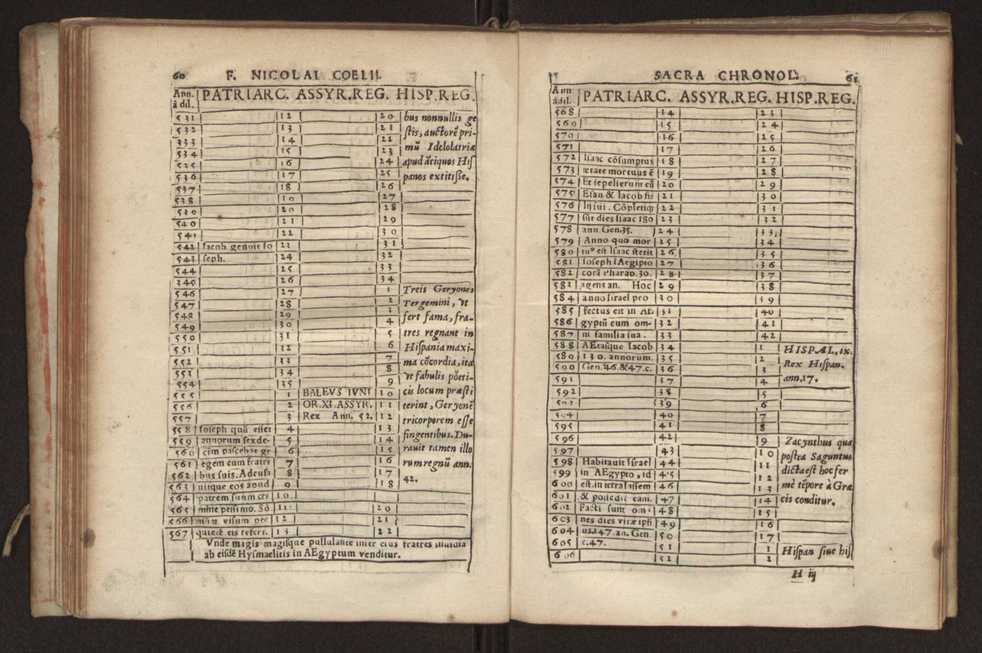 60 F. NICOLAI COELII.
Ann. à dil. PATRIARC. ASSYR.REG. HISP.REG.
531 12 20 bus nonnullis ge
532 13 21 stis, auctorē pri-
533 14 22 mū Idololatriæ
534 15 23 apud ātiquos His
16 24 panos extitisse.
536 17 25
537 18 26
27
20 28
21 29
541 22 30
542 Iacob. genuit Io 23 31
543 seph. 24 32
544 25 33
26 34
546 27 1 Treis Geryones
547 28 2 Tergemini, vt
548 29 3 fert fama, fra-
549 30 4
550 31 5 tres regnant in
551 32 6 Hispania maxi-
552 33 7 ma cōcordia, ita
553 34 8
554 35 9 vt fabulis pōeti-
555 1 BALEVS IVNI 10 cis locum præsti
556 2 OR.XI.ASSYR. 11 terint, Geryonē
557 3 Rex Ann. 52. 12 tricorporem esse
558 Ioseph quū esset 4 13 fingentibus. Du-
559 annorum sexde- 5 14 rauit tamen illo
560 cim pascebat gr 6 15
561 egem cum fratri 7 16 rum regnū ann.
562 bus suis. Adeusi 8 17 42.
563 9 18
564 patrem suum cri 10
565 mine pessimo. Sō 11 20
566 12 21
567 13 22
Vnde magis magisque pullulante inter eius fratres inuidia
ab eisdē Hysmaelitis in AEgyptum venditur.
SACRA CHRONOL. 61
Ann à dil. PATRIARC. ASSYR.REG. HISP.REG.
568 14 23
569 15 24
570 16 25
571 17 26
572 Isaac cōsumptus 18 27
573 ætate mortuus ē 19 28
574 Et sepelierunt eū 20 29
575 Esau & Iacob fii 21 30
576 lij sui. Cōpletiq; 22 31
577 sūt dies Isaac 180 23 32
578 ann. Gen. 35. 24 33
579 Anno quo mor 25 34
580 tuº est Isaac stetit 26 35
581 Ioseph i AEgipto 27 36
582 corā Pharao. 30. 28 37
583 agens an. Hoc 29 38
584 anno Israel pro 30 39
585 fectus est in AE- 31 40
586 gyptū cum om- 32 41
587 ni familia sua. 33 42
588 AEtatisque Iacob 34 1 HISPAL, ix.
589 130. annorum. 35 2 Rex Hispan.
590 Gen. 46. & 47. c. 36 3 ann. 17.
591 37 4
592 38 5
39 6
40 7
595 41 8
596 42 9 Zacynthus quæ
597 43 10 postea Saguntus
598 Habitauit Israel 44 11 dicta est hoc fer
599 in AEgypto, id 45 12 mè tēpore à Græ
600 est. in terra Iessem 46 13
601 & possedit eam. 47 14 cis conditur.
602 Facti sunt om- 48 15
603 nes dies vitæ ipsi 49 16
604 us. 147. an. Gen. 50 17
605 c. 47. 51 1 Hispan siue his
606 52 2
H iij